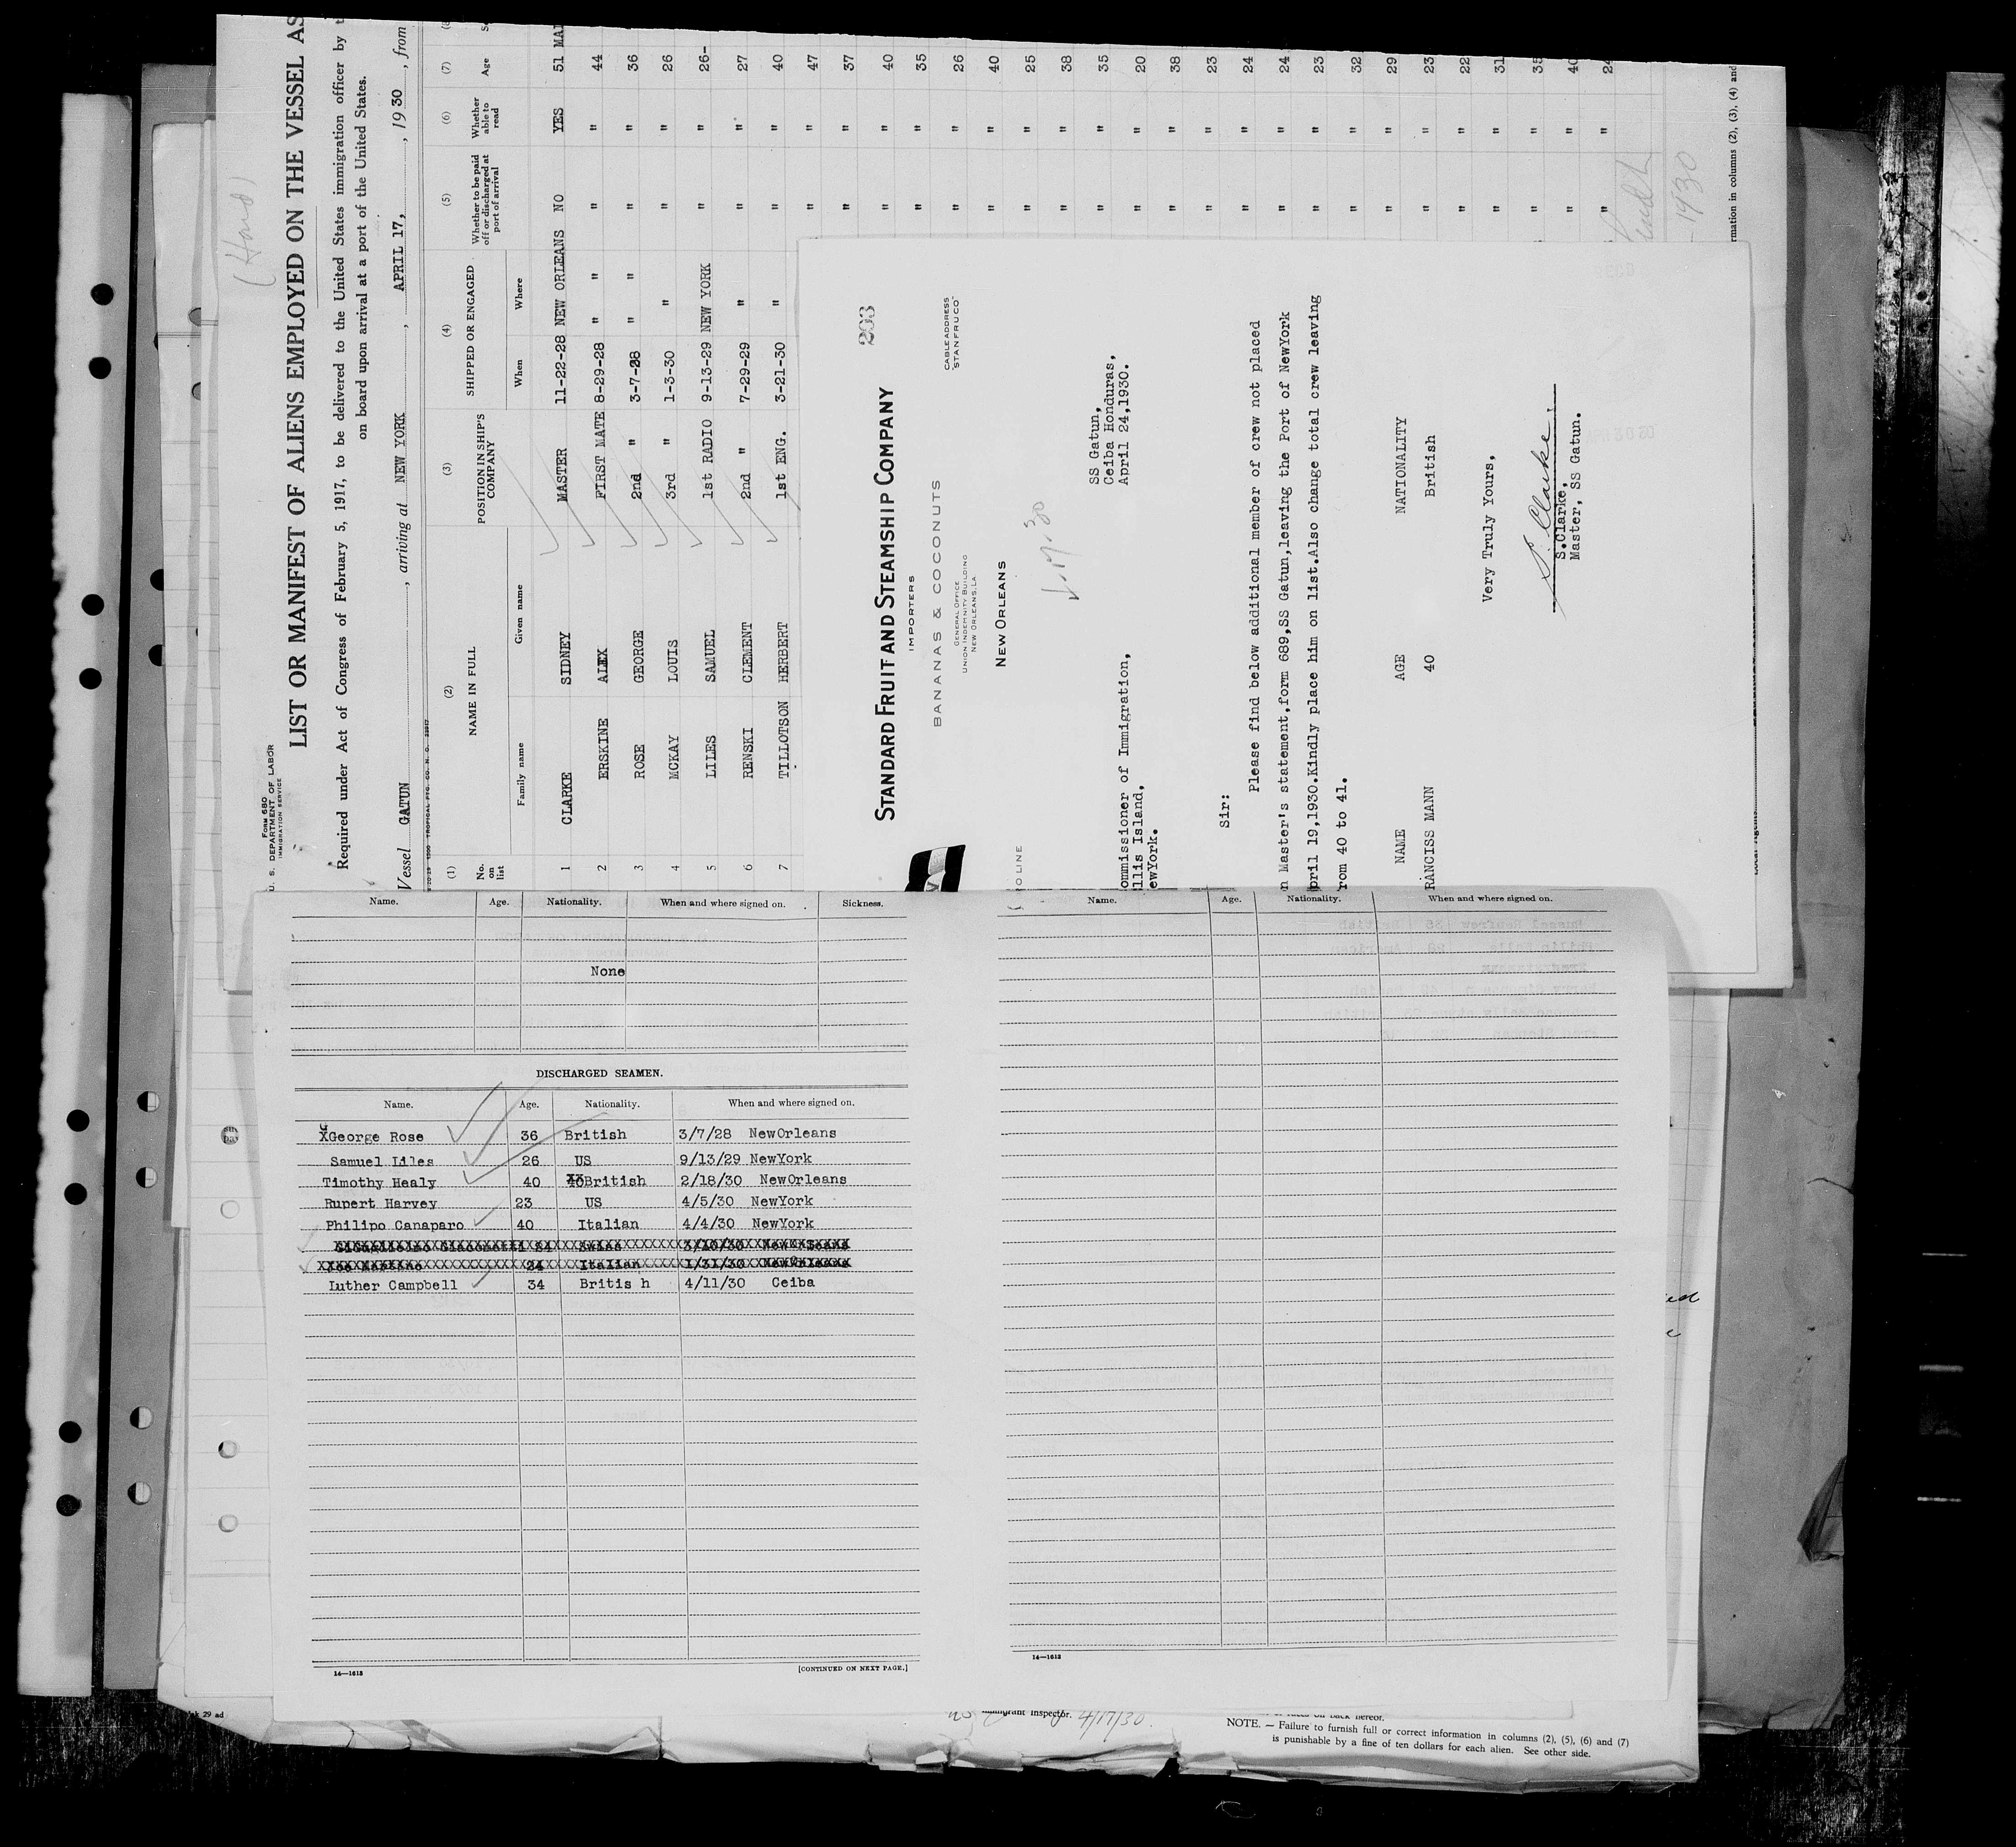 (Hand)
FORM 680
U. S. DEPARTMENT OF LABOR
IMMIGRATION SERVICE
LIST OR MANIFEST OF ALIENS EMPLOYED ON THE VESSEL AS
Required under Act of Congress of February 5, 1917, to be delivered to the United States immigration officer by
on board upon arrival at a port of the United States.
Vessel GATUN, arriving at NEW YORK, APRIL 17, 1930, from
(1) (2) (3) (4) (5) (6) (7)
No. on list NAME IN FULL POSITION IN SHIP'S COMPANY SHIPPED OR ENGAGED Whether to be paid off or discharged at port of arrival Whether able to read Age
Family name Given name When Where
1 CLARKE SIDNEY MASTER 11-22-28 NEW ORLEANS NO YES 51
2 ERSKINE ALEX FIRST MATE 8-29-28 " " " " 44
3 ROSE GEORGE 2nd " 3-7-28 " " " " 36
4 MCKAY LOUIS 3rd " 1-3-30 " " " 26
5 LILES SAMUEL 1st RADIO 9-13-29 NEW YORK " " 26-
6 RENSKI CLEMENT 2nd " 7-29-29 " " " 27
7 TILLOTSON HERBERT 1st ENG. 3-21-30 " " " 40
" " 47
" " 37
" " 40
" " 35
" " 26
" " 40
" " 25
" " 38
" " 35
" " 20
" " 38
" " 23
" " 24
" " 24
" " 23
" " 32
" " 29
" " 23
" " 22
" " 31
" " 35
" " 40
" " 24
1930
rmation in columns (2), (3), (4) and
203
STANDARD FRUIT AND STEAMSHIP COMPANY
IMPORTERS
BANANAS & COCONUTS
CABLE ADDRESS
"STANFRUCO"
GENERAL OFFICE
UNION INDEMNITY BUILDING
NEW ORLEANS, LA.
NEW ORLEANS
SS Gatun,
Ceiba Honduras,
April 24,1930.
ommissioner of Immigration,
llis Island,
ewYork.
Sir:
Please find below additional member of crew not placed
n Master's statement,form 689,SS Gatun,leaving the Port of NewYork
pril 19,1930.Kindly place him on list.Also change total crew leaving
rom 40 to 41.
NAME AGE NATIONALITY
RANCISS MANN 40 British
Very Truly Yours,
S. Clarke
S.Clarke,
Master, SS Gatun.
Name. Age. Nationality. When and where signed on. Sickness.
None
DISCHARGED SEAMEN.
Name. Age. Nationality. When and where signed on.
George Rose 36 British 3/7/28 NewOrleans
Samuel Liles 26 US 9/13/29 NewYork
Timothy Healy 40 British 2/18/30 NewOrleans
Rupert Harvey 23 US 4/5/30 NewYork
Philipo Canaparo 40 Italian 4/4/30 NewYork
24 Swiss 3/10/30 NewOrleans
24 Italian 1/31/30 NewOrleans
Luther Campbell 34 Britis h 4/11/30 Ceiba
14—1613
[CONTINUED ON NEXT PAGE.]
Name. Age. Nationality. When and where signed on.
14—1613
29 ad
Inspector. 4/17/30
NOTE. — Failure to furnish full or correct information in columns (2), (5), (6) and (7)
is punishable by a fine of ten dollars for each alien. See other side.